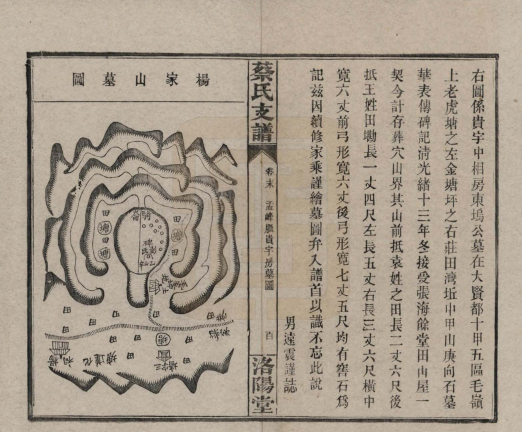 右圖係貴字中相房東塢公墓在大賢都十甲五區毛嶺
上老虎塘之左金塘坪之右莊田灣坵中甲山庚向石墓
華表傳碑記清光緒十三年冬接受張海餘堂田山屋一
契今計存葬穴山界其山前抵袁姓之田長二丈六尺後
抵王姓田墈長一丈四尺左長五丈右長三丈六尺橫中
寬六丈前弓形寬六丈後弓形寬七丈五尺均有窖石爲
記茲因續修家乘謹繪墓圖弁入譜首以識不忘此說
男遠震謹誌
蔡氏支譜
卷末
孟峰脈貴字房墓圖
百
洛陽堂
楊家山墓圖
田
田
田
田
塘
塘